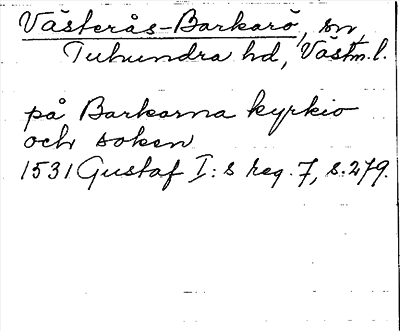 Västerås-Barkarö, sn,
Tuhundra hd, Västm. l.
på Barkarna kyrkio
och soken
1531 Gustaf I:s reg. 7, s. 279.